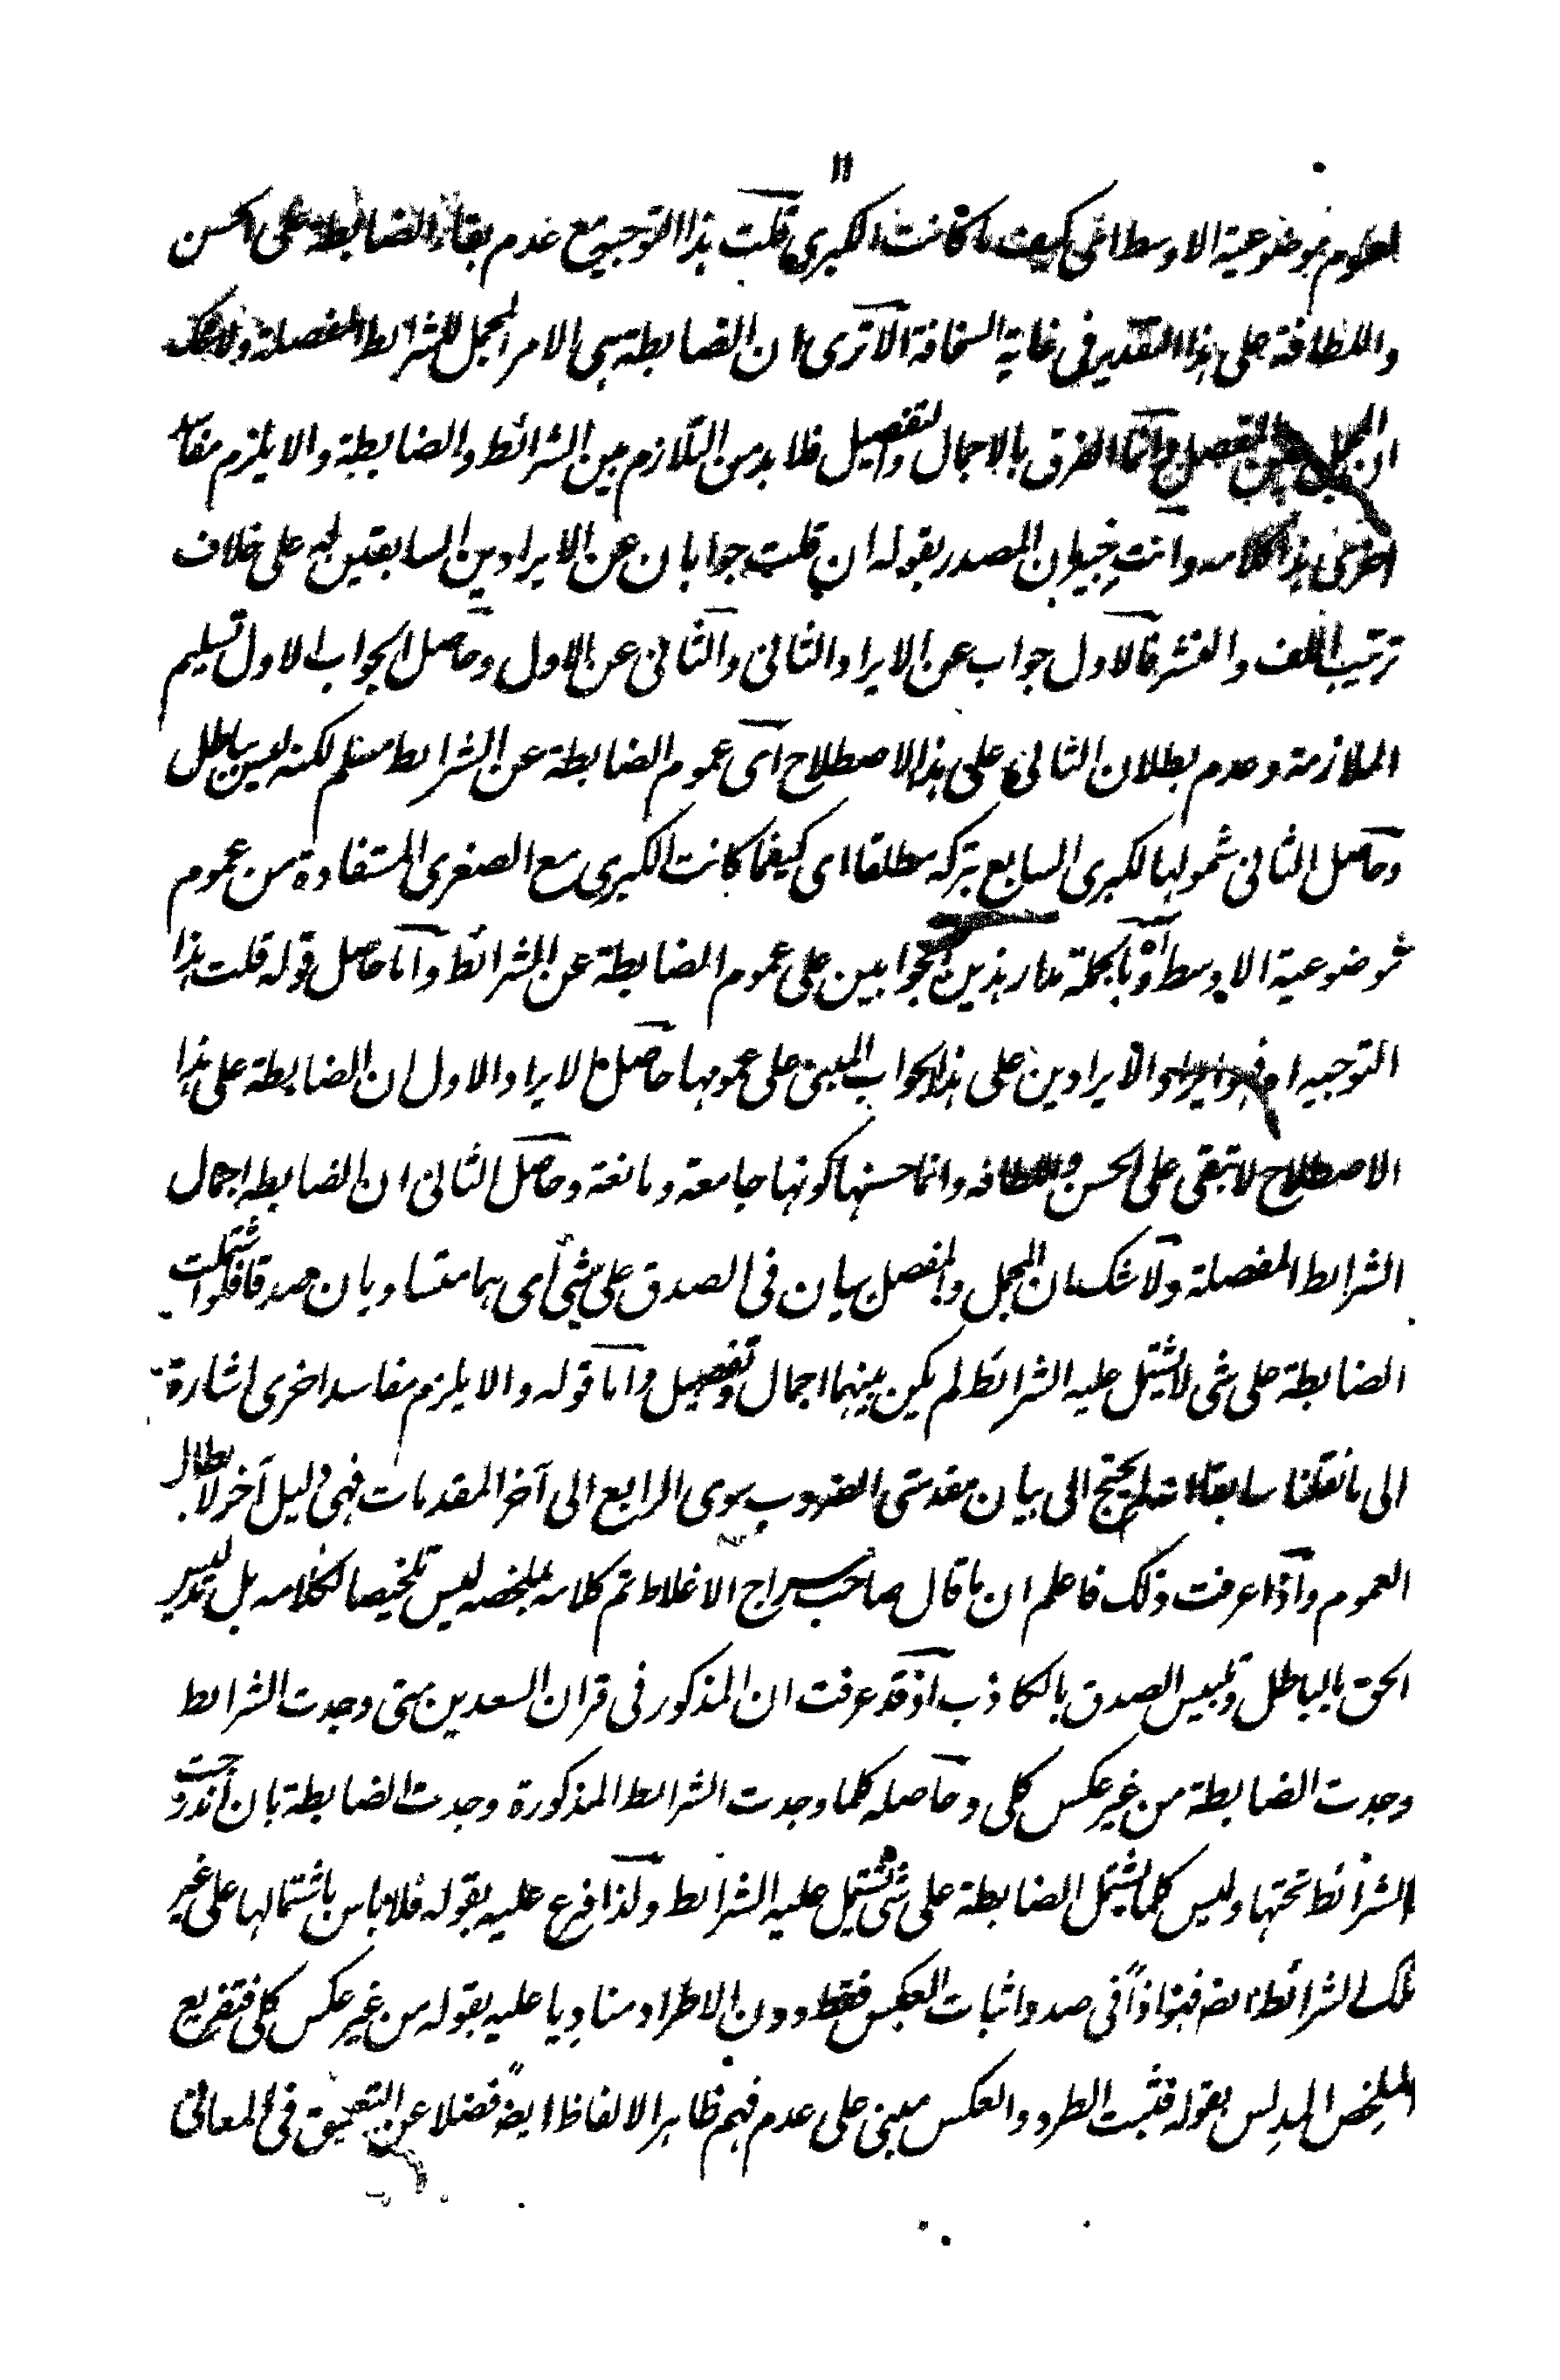 ١١
لعموم موضوعية الاوسط اخى كيف ما كانت الكبرى قلت هذا التوجيه مع عدم بقاء الضابطة على الحسن
واللطافة على هذا التقدير فى غاية السخافة الا ترى ان الضابطة هى الامر المجمل للشرائط المفصلة ولا شك
ان المجمل عين المفصل وانما الفرق بالاجمال والتفصيل فلا بد من التلازم بين الشرائط والضابطة والا يلزم مفاسد
اخرى هذا كلامه وانت خبير بان المصدر بقوله ان قلت جوابان عن الايرادين السابقين على خلاف
ترتيب اللف والنشر فالاول جواب عن الايراد الثانى والثانى عن الاول وحاصل الجواب الاول تسليم
الملازمة وعدم بطلان التالى على هذا الاصطلاح اى عموم الضابطة عن الشرائط مسلم لكنه ليس بباطل
وحاصل الثانى شمولها لكبرى السابع بتركه مطلقا اى كيفما كانت الكبرى مع الصغرى المستفادة من عموم
موضوعية الاوسط اه وبالجملة مدار هذين الجوابين على عموم الضابطة عن الشرائط واما حاصل قوله قلت هذا
التوجيه اه فهو ايراد الايرادين على هذا الجواب المبنى على عمومها حاصل الايراد الاول ان الضابطة على هذا
الاصطلاح لا تبقى على الحسن واللطافة وانما حسنها كونها جامعة ومانعة وحاصل الثانى ان الضابطة اجمال
الشرائط المفصلة ولا شك ان المجمل والمفصل سيان فى الصدق على شئ اى هما متساويان صدقا فلو اشتملت
الضابطة على شى لا يشتمل عليه الشرائط لم يكن بينهما اجمال وتفصيل واما قوله والا يلزم مفاسد اخرى اشارة
الى ما نقلنا سابقا انه لم يحتج الى بيان مقدمتى الضروب سوى الرابع الى آخر المقدمات فهى دليل آخر لابطال
العموم واذا عرفت ذلك فاعلم ان ما قال صاحب سراج الاغلاط تم كلامه بملخصه ليس تلخيصا لكلامه بل تدليس
الحق بالباطل وتلبيس الصدق بالكاذب اذ قد عرفت ان المذكور فى قران السعدين متى وجدت الشرائط
وجدت الضابطة من غير عكس كلى وحاصله كلما وجدت الشرائط المذكورة وجدت الضابطة بان اندرجت
الشرائط تحتها وليس كلما يشتمل الضابطة على شئ تشتمل عليه الشرائط ولذا فرع عليه بقوله فلا باس باشتمالها على غير
تلك الشرائط ايضا فهو اذاً فى صدد اثبات العكس فقط دون الاطراد مناديا عليه بقوله من غير عكس كلى فتفريع
الملخص المدلس بقوله فثبت الطرد والعكس مبنى على عدم فهم ظاهر الالفاظ ايضا فضلا عن التعميق فى المعانى